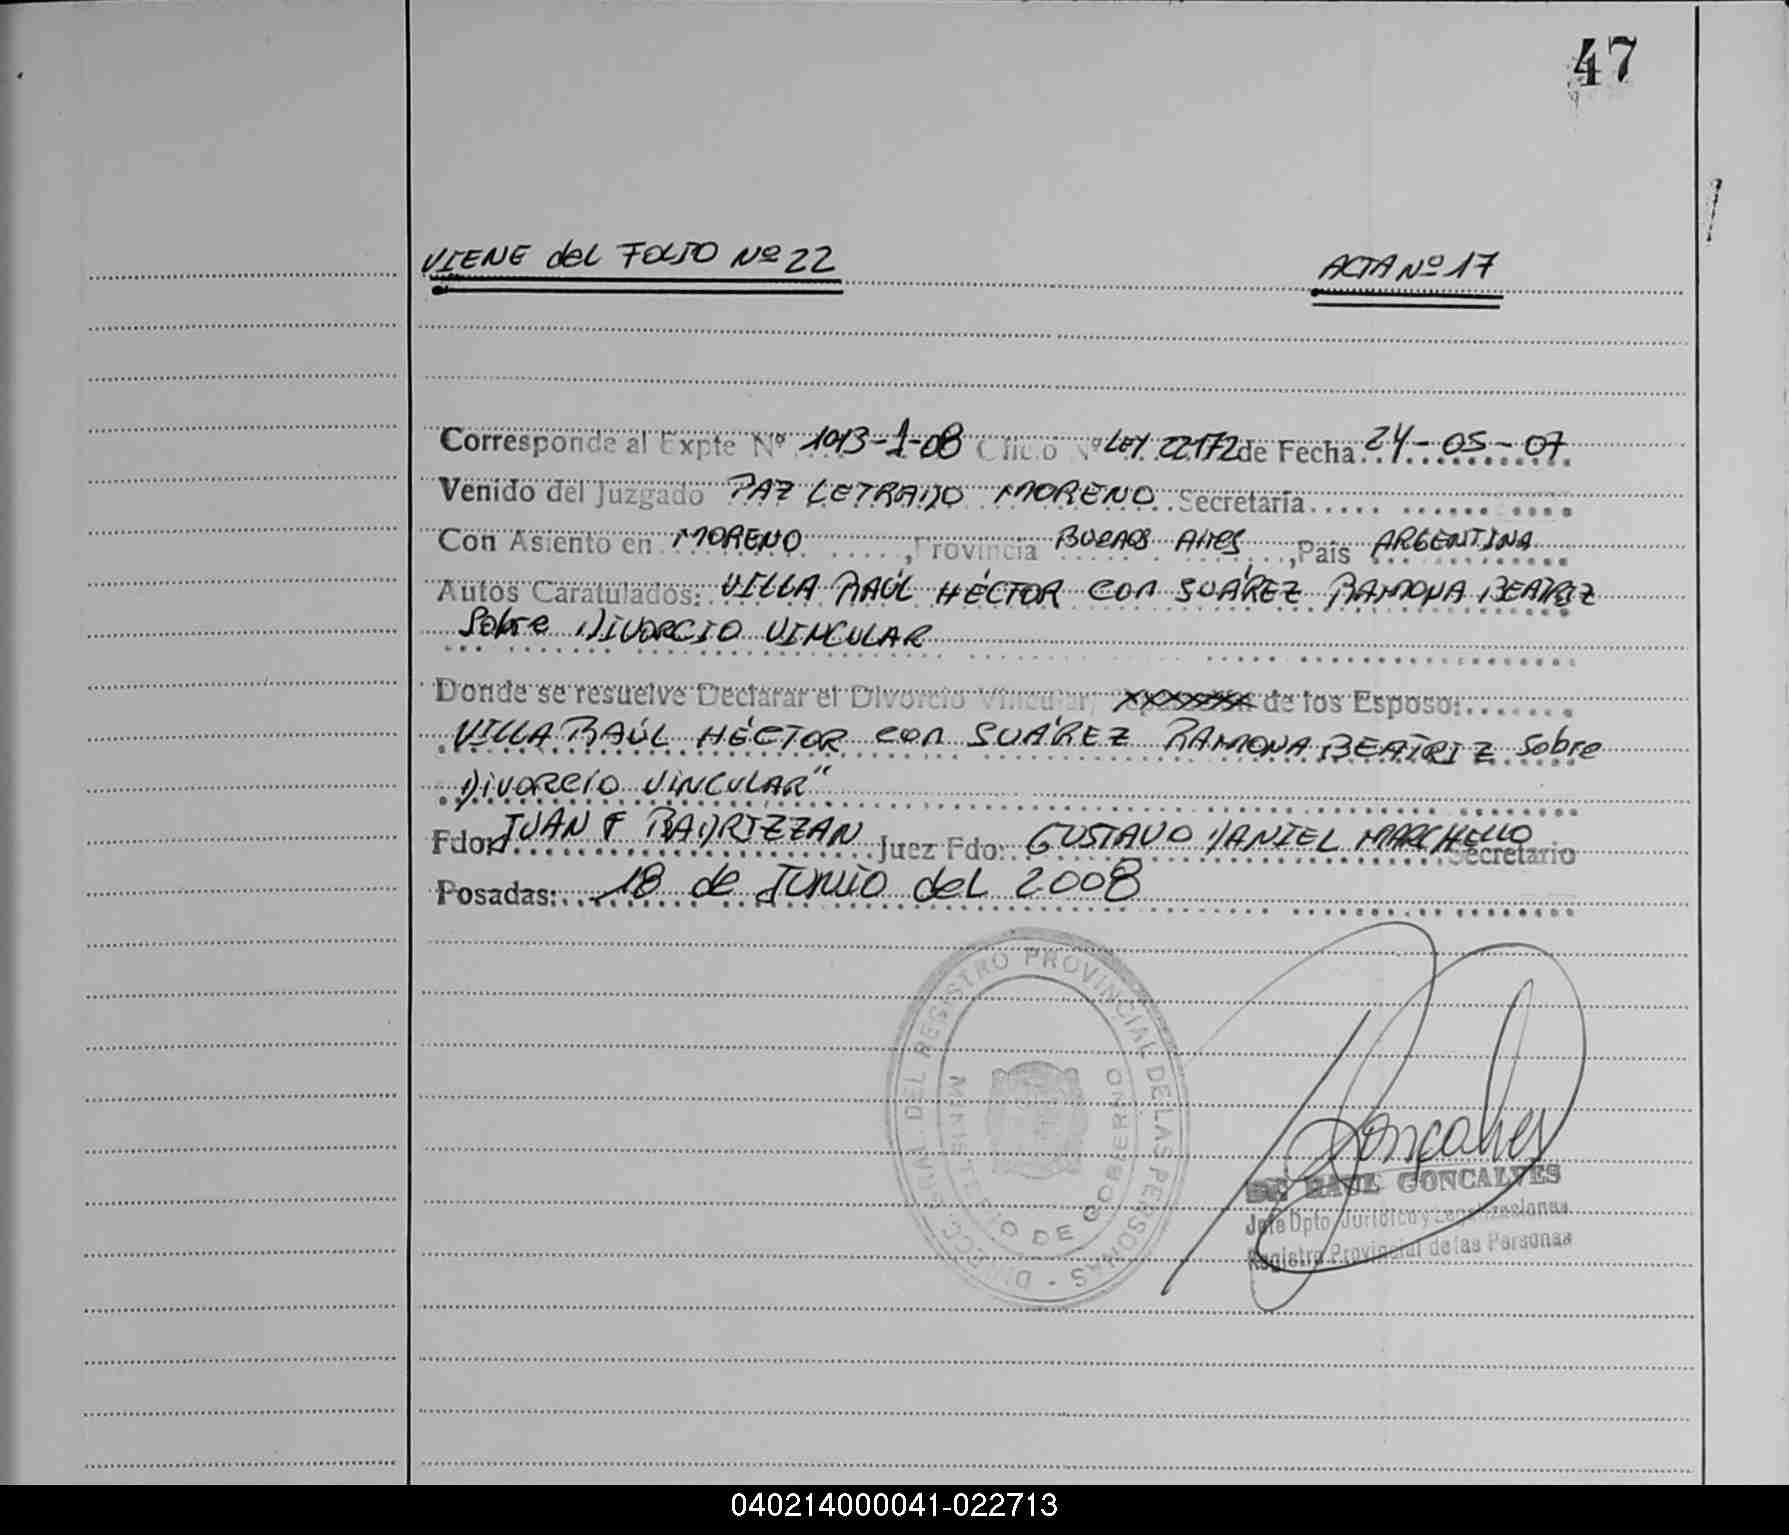 47
VIENE del FOLIO Nº 22
ACTA Nº 17
Corresponde al Expte Nº 1013-1-08 Oficio Nº LEY 22172 de Fecha 24-05-07
Venido del Juzgado PAZ LETRADO MORENO Secretaría
Con Asiento en MORENO, Provincia BUENOS AIRES, País ARGENTINA
Autos Caratulados: VILLA RAÚL HÉCTOR con SUÁREZ RAMONA BEATRIZ
Sobre DIVORCIO VINCULAR
Donde se resuelve Declarar el Divorcio Vincular, de los Esposo:
VILLA RAÚL HÉCTOR con SUÁREZ RAMONA BEATRIZ Sobre
DIVORCIO VINCULAR"
Fdo: JUAN F BADRIZZAN Juez Fdo: GUSTAVO DANIEL MARCHELLO Secretario
Posadas: 18 de JUNIO del 2008
DIRECC. GRAL. DEL REGISTRO PROVINCIAL DE LAS PERSONAS -
MINISTERIO DE GOBIERNO
Goncalves
Dr. RAUL GONCALVES
Jefe Dpto. Jurídico y Legalizaciones
Registro Provincial de las Personas
040214000041-022713